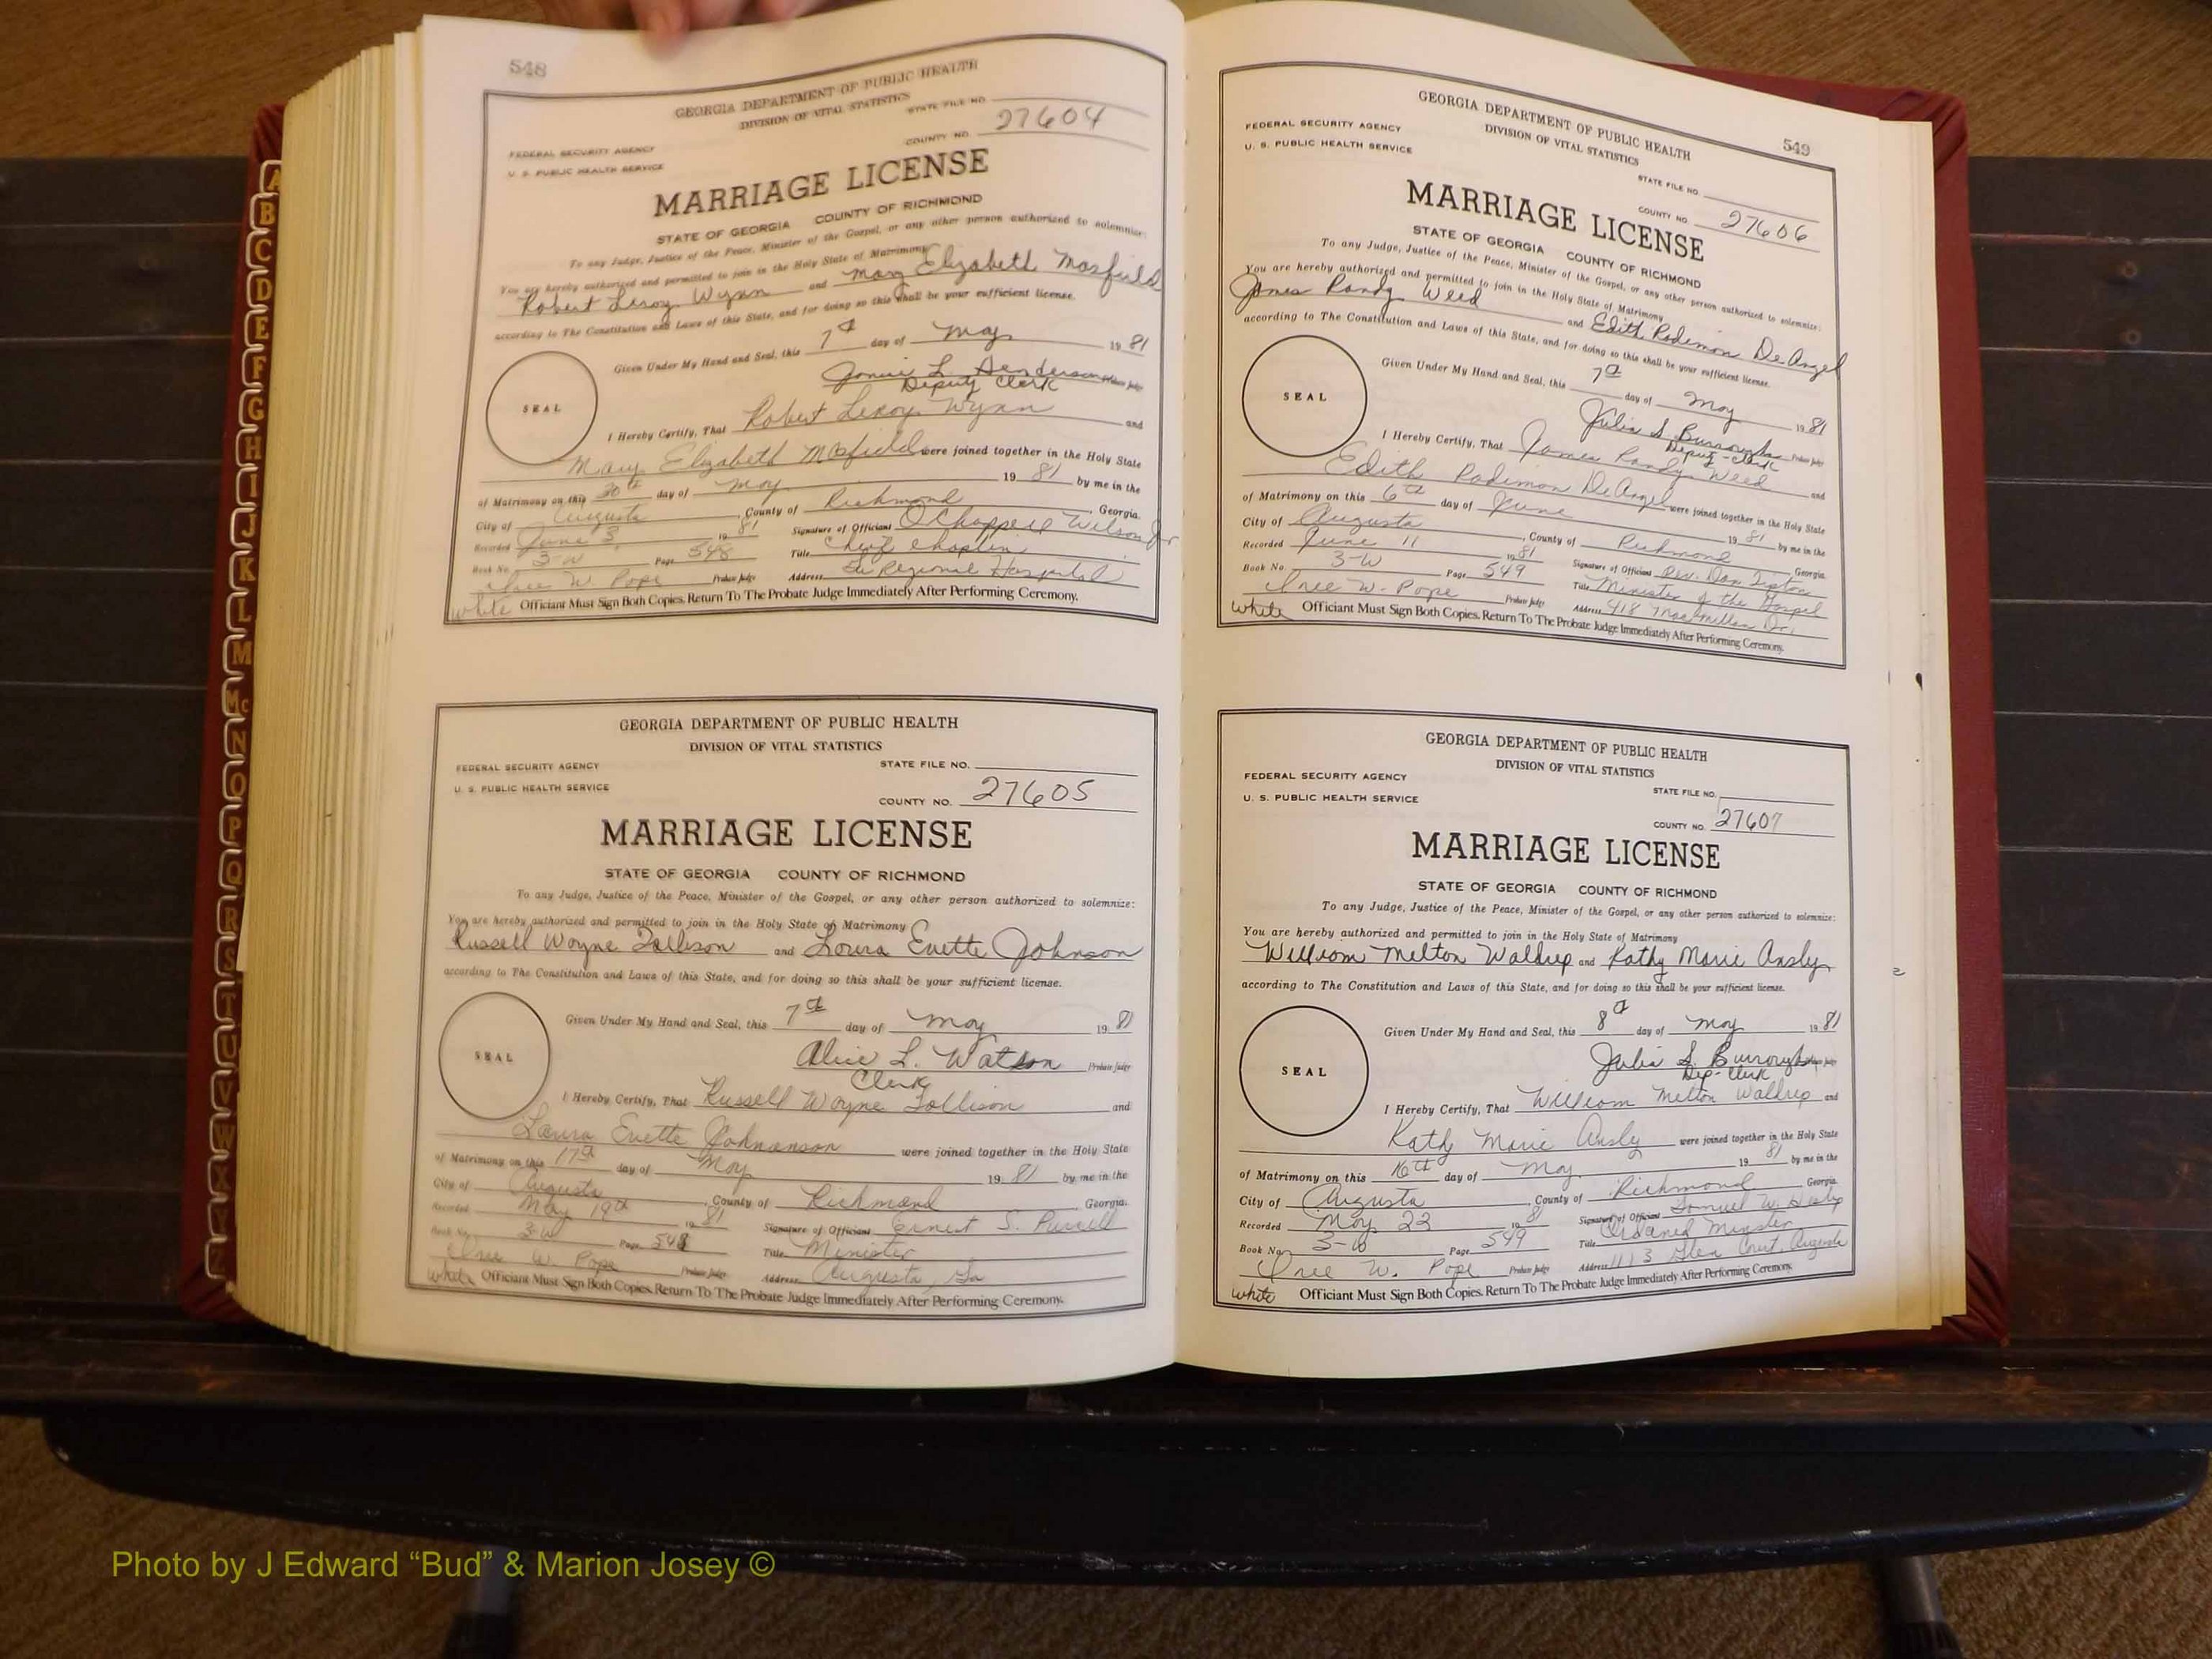 548
GEORGIA DEPARTMENT OF PUBLIC HEALTH
DIVISION OF VITAL STATISTICS
STATE FILE NO.
FEDERAL SECURITY AGENCY
COUNTY NO. 27604
U. S. PUBLIC HEALTH SERVICE
MARRIAGE LICENSE
STATE OF GEORGIA COUNTY OF RICHMOND
To any Judge, Justice of the Peace, Minister of the Gospel, or any other person authorized to solemnize:
You are hereby authorized and permitted to join in the Holy State of Matrimony
Robert Leroy Wynn and Mary Elizabeth Masfield
according to The Constitution and Laws of this State, and for doing so this shall be your sufficient license.
Given Under My Hand and Seal, this 7th day of May 19 81
SEAL
L. Henderson Probate Judge
Deputy Clerk
I Hereby Certify, That Robert Leroy Wynn and
Mary Elizabeth Masfield were joined together in the Holy State
of Matrimony on this 30th day of May 19 81 by me in the
City of Augusta, County of Richmond, Georgia.
Recorded June 3, 19 81 Signature of Officiant O Chappell Wilson Jr
Book No. 3-W Page 548 Title Chief Chaplin
W. Pope Probate Judge Address Regional Hospital
white Officiant Must Sign Both Copies. Return To The Probate Judge Immediately After Performing Ceremony.
GEORGIA DEPARTMENT OF PUBLIC HEALTH
DIVISION OF VITAL STATISTICS
FEDERAL SECURITY AGENCY STATE FILE NO.
U. S. PUBLIC HEALTH SERVICE
COUNTY NO. 27605
MARRIAGE LICENSE
STATE OF GEORGIA COUNTY OF RICHMOND
To any Judge, Justice of the Peace, Minister of the Gospel, or any other person authorized to solemnize:
You are hereby authorized and permitted to join in the Holy State of Matrimony
Russell Wayne Tollison and Laura Evette Johnson
according to The Constitution and Laws of this State, and for doing so this shall be your sufficient license.
Given Under My Hand and Seal, this 7th day of May 19 81
SEAL
Alice L. Watson Probate Judge
Clerk
I Hereby Certify, That Russell Wayne Tollison and
Laura Evette Johnanson were joined together in the Holy State
of Matrimony on this 17th day of May 19 81 by me in the
City of Augusta, County of Richmond Georgia.
Recorded May 19th 19 81 Signature of Officiant Ernest S. Purcell
Book No. 3-W Page 548 Title Minister
W. Pope Probate Judge Address Augusta, Ga
white Officiant Must Sign Both Copies. Return To The Probate Judge Immediately After Performing Ceremony.
549
GEORGIA DEPARTMENT OF PUBLIC HEALTH
DIVISION OF VITAL STATISTICS
FEDERAL SECURITY AGENCY
U. S. PUBLIC HEALTH SERVICE
STATE FILE NO.
COUNTY NO. 27606
MARRIAGE LICENSE
STATE OF GEORGIA COUNTY OF RICHMOND
To any Judge, Justice of the Peace, Minister of the Gospel, or any other person authorized to solemnize:
You are hereby authorized and permitted to join in the Holy State of Matrimony
James Randy Weed and Edith Rodimon DeAngel
according to The Constitution and Laws of this State, and for doing so this shall be your sufficient license.
Given Under My Hand and Seal, this 7th day of May 19 81
SEAL
Julia S. Burroughs Probate Judge
Deputy-Clerk
I Hereby Certify, That James Randy Weed and
Edith Rodimon DeAngel were joined together in the Holy State
of Matrimony on this 6th day of June 19 81 by me in the
City of Augusta, County of Richmond Georgia.
Recorded June 11 19 81 Signature of Officiant Rev. Don Tipton
Book No. 3-W Page 549 Title Minister of the Gospel
W. Pope Probate Judge Address 418 Macmillan Dr.
white Officiant Must Sign Both Copies. Return To The Probate Judge Immediately After Performing Ceremony.
GEORGIA DEPARTMENT OF PUBLIC HEALTH
DIVISION OF VITAL STATISTICS
FEDERAL SECURITY AGENCY
STATE FILE NO.
U. S. PUBLIC HEALTH SERVICE
COUNTY NO. 27607
MARRIAGE LICENSE
STATE OF GEORGIA COUNTY OF RICHMOND
To any Judge, Justice of the Peace, Minister of the Gospel, or any other person authorized to solemnize:
You are hereby authorized and permitted to join in the Holy State of Matrimony
William Melton Waldrep and Kathy Marie Ansly
according to The Constitution and Laws of this State, and for doing so this shall be your sufficient license.
Given Under My Hand and Seal, this 8th day of May 19 81
SEAL
Julia S. Burroughs Probate Judge
Dep-Clerk
I Hereby Certify, That William Melton Waldrep and
Kathy Marie Ansly were joined together in the Holy State
of Matrimony on this 16th day of May 19 81 by me in the
City of Augusta County of Richmond Georgia
Recorded May 22 19 81 Signature of Officiant Samuel W.
Book No. 3-W Page 549 Title Ordaned Minister
W. Pope Probate Judge Address 1113 Glen Court, Augusta
white Officiant Must Sign Both Copies. Return To The Probate Judge Immediately After Performing Ceremony.
A
B
C
D
E
F
G
H
I
J
K
L
M
Mc
N
O
P
Q
R
S
T
U
V
W
X
Y
Z
Photo by J Edward “Bud” & Marion Josey ©